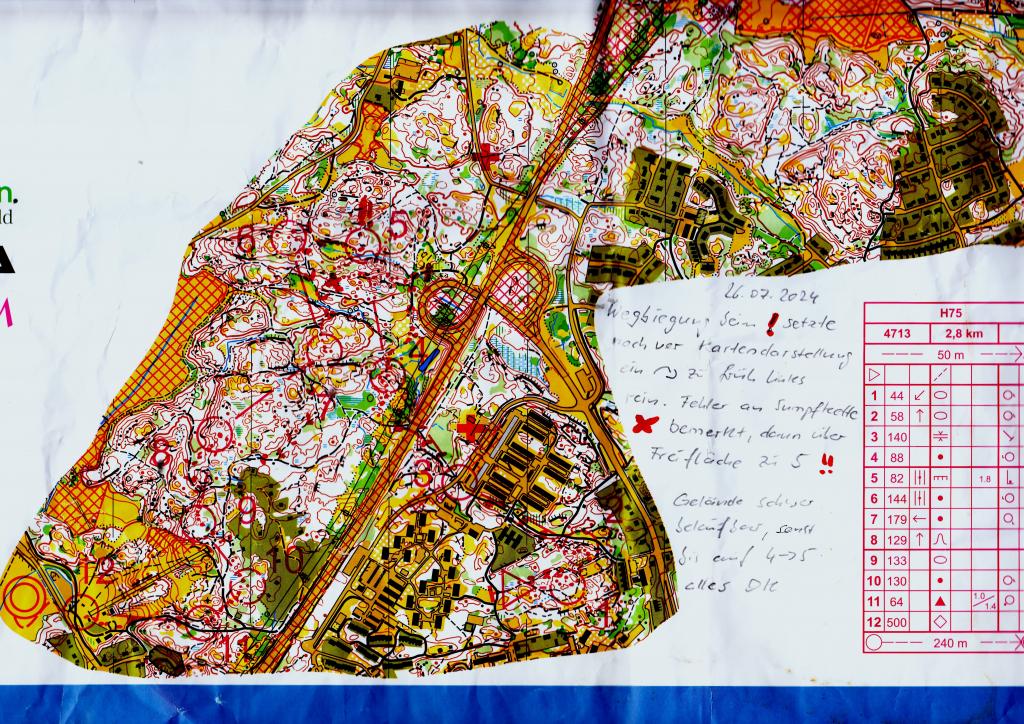 n.
ld
A
26.07.2024
Wegbiegung beim ! setzte
nach der Kartendarstellung
ein zu früh links
rein. Fehler an Sumpfkette
bemerkt, dann über
Freifläche zu 5 !!
Gelände schwer
belaufbar, sonst
bis auf 4->5
alles OK
H75
4713 2,8 km
50 m
1 44
2 58
3 140
4 88
5 82 1.8
6 144
7 179
8 129
9 133
10 130
11 64 1.0/1.4
12 500
240 m
6
!!
5
4
7
3
8
9
2
10
12
1
11